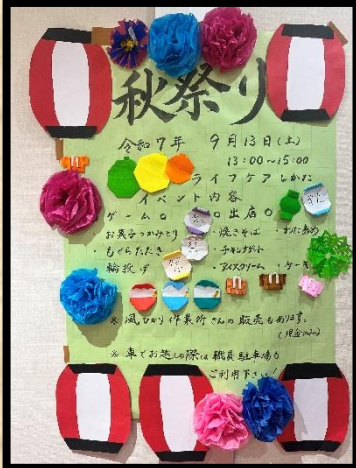 秋祭り
令和7年 9月13日(土)
13:00~15:00
ライフケアしかた
イベント内容
ゲーム 出店
・お菓子つかみとり ・焼きそば ・わたあめ
・もぐらたたき ・チキンナゲット
・輪投げ ・アイスクリーム ・ケーキ
※風ひかり作業所さんの販売もあります。
(現金のみ)
※車でお越しの際は職員駐車場を
ご利用下さい!